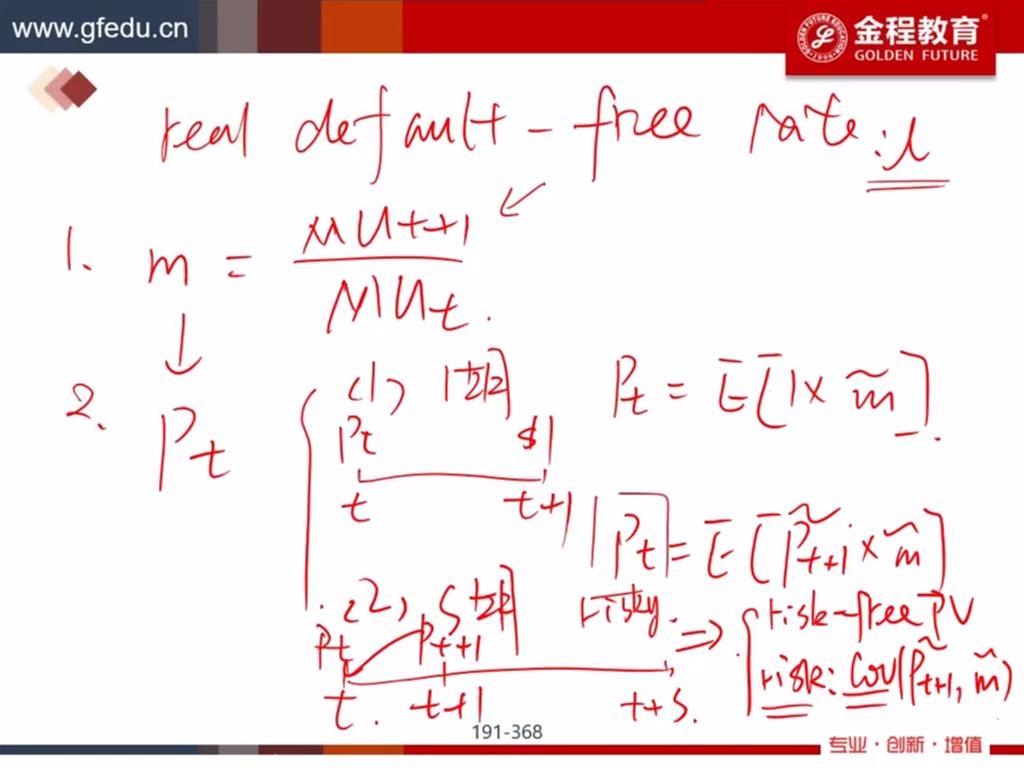 www.gfedu.cn
金程教育®
GOLDEN FUTURE
real default-free rate: l
1. m = MUt+1 / MUt.
↓
2. Pt
(1) 1期
Pt $1
t t+1
Pt = E[1 × m̃].
(2) S期
Pt Pt+1
t. t+1 t+s.
Pt = E[P̃t+1 × m̃]
risky. ⇒
risk-free PV
risk: Cov(P̃t+1, m̃)
191-368
专业·创新·增值